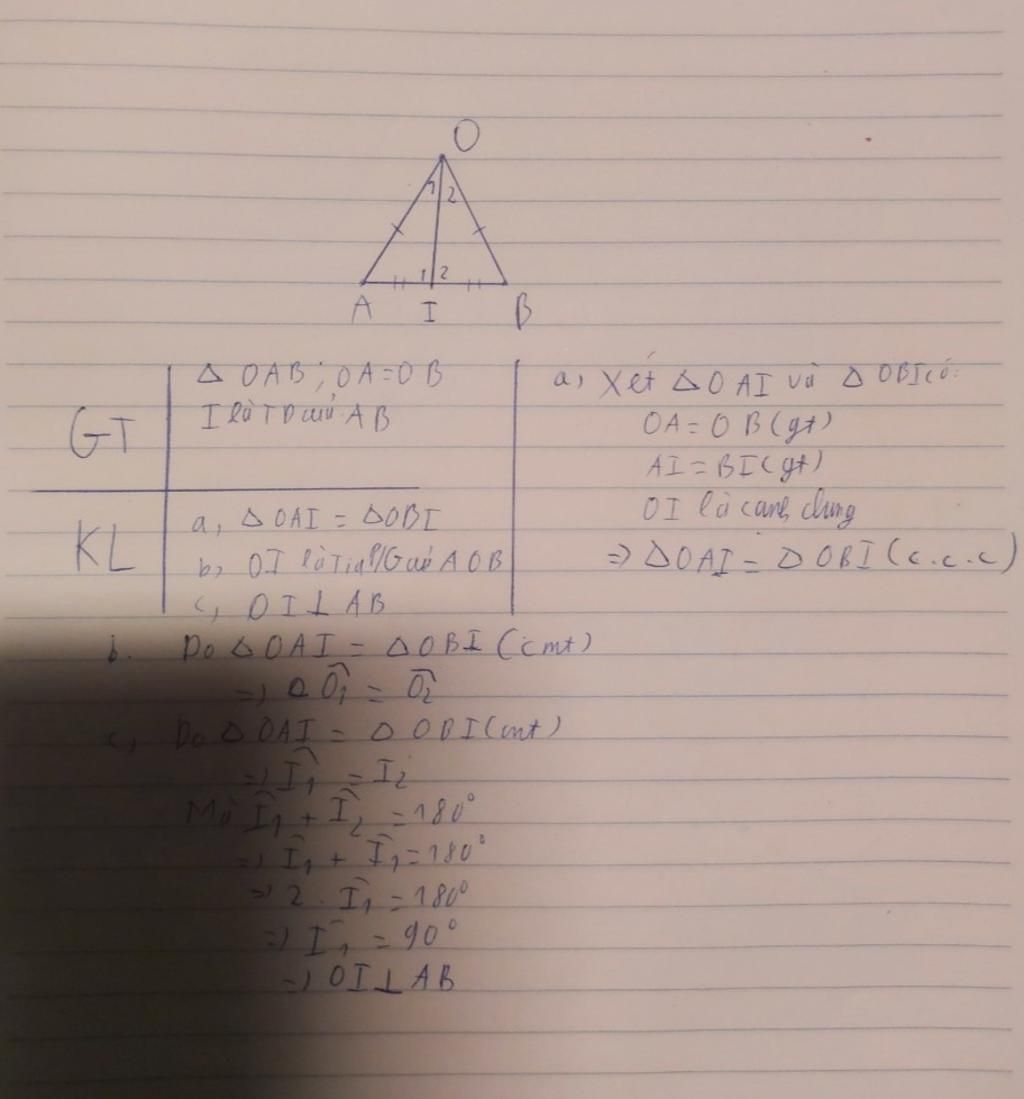 O
1 2
1 2
A I B
GT
Δ OAB ; OA = OB
I là TD của AB
KL
a, Δ OAI = ΔOBI
b, OI là Tia P/G của AOB
c, OI ⊥ AB
a, Xét Δ OAI và Δ OBI có:
OA = OB (gt)
AI = BI (gt)
OI là cạnh chung
=> Δ OAI = Δ OBI (c.c.c)
b. Do Δ OAI = Δ OBI (cmt)
=> Δ Ô1 = Ô2
c, Do Δ OAI = Δ OBI (cmt)
=> Î1 = I2
Mà Î1 + Î2 = 180°
=> Î1 + Î1 = 180°
=> 2 . Î1 = 180°
=> Î1 = 90°
=> OI ⊥ AB